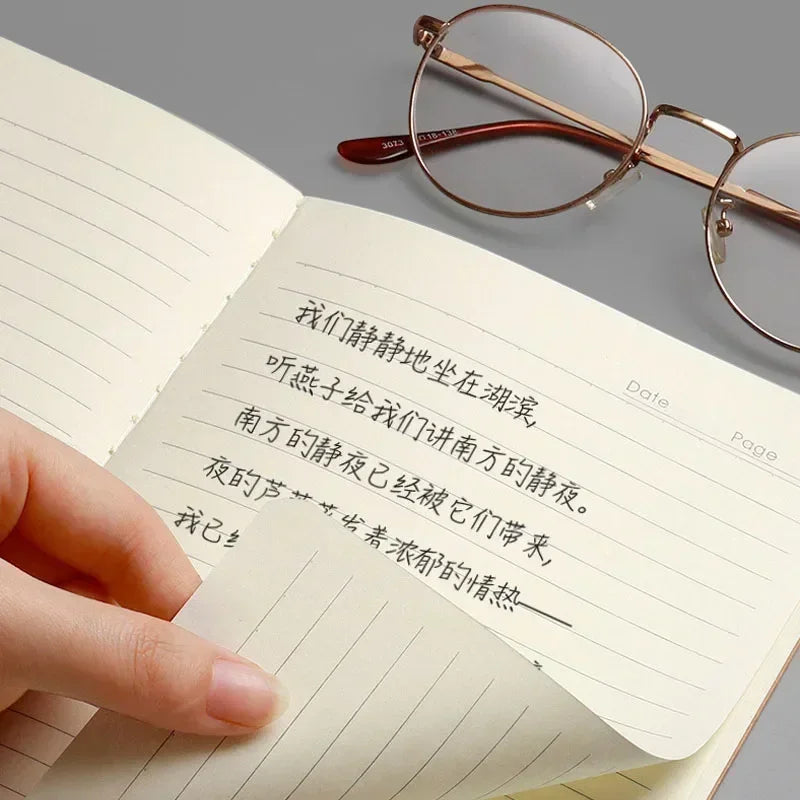 3073 18-138
Date
Page
我们静静地坐在湖滨,
听燕子给我们讲南方的静夜。
南方的静夜已经被它们带来,
夜的芦苇蒸发着浓郁的情热——
我已经